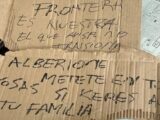 FRONTERA
ES NUESTRA
EL QUE
ALBERIONE
METETE EN T
COSAS SI KERES A
TU FAMILIA